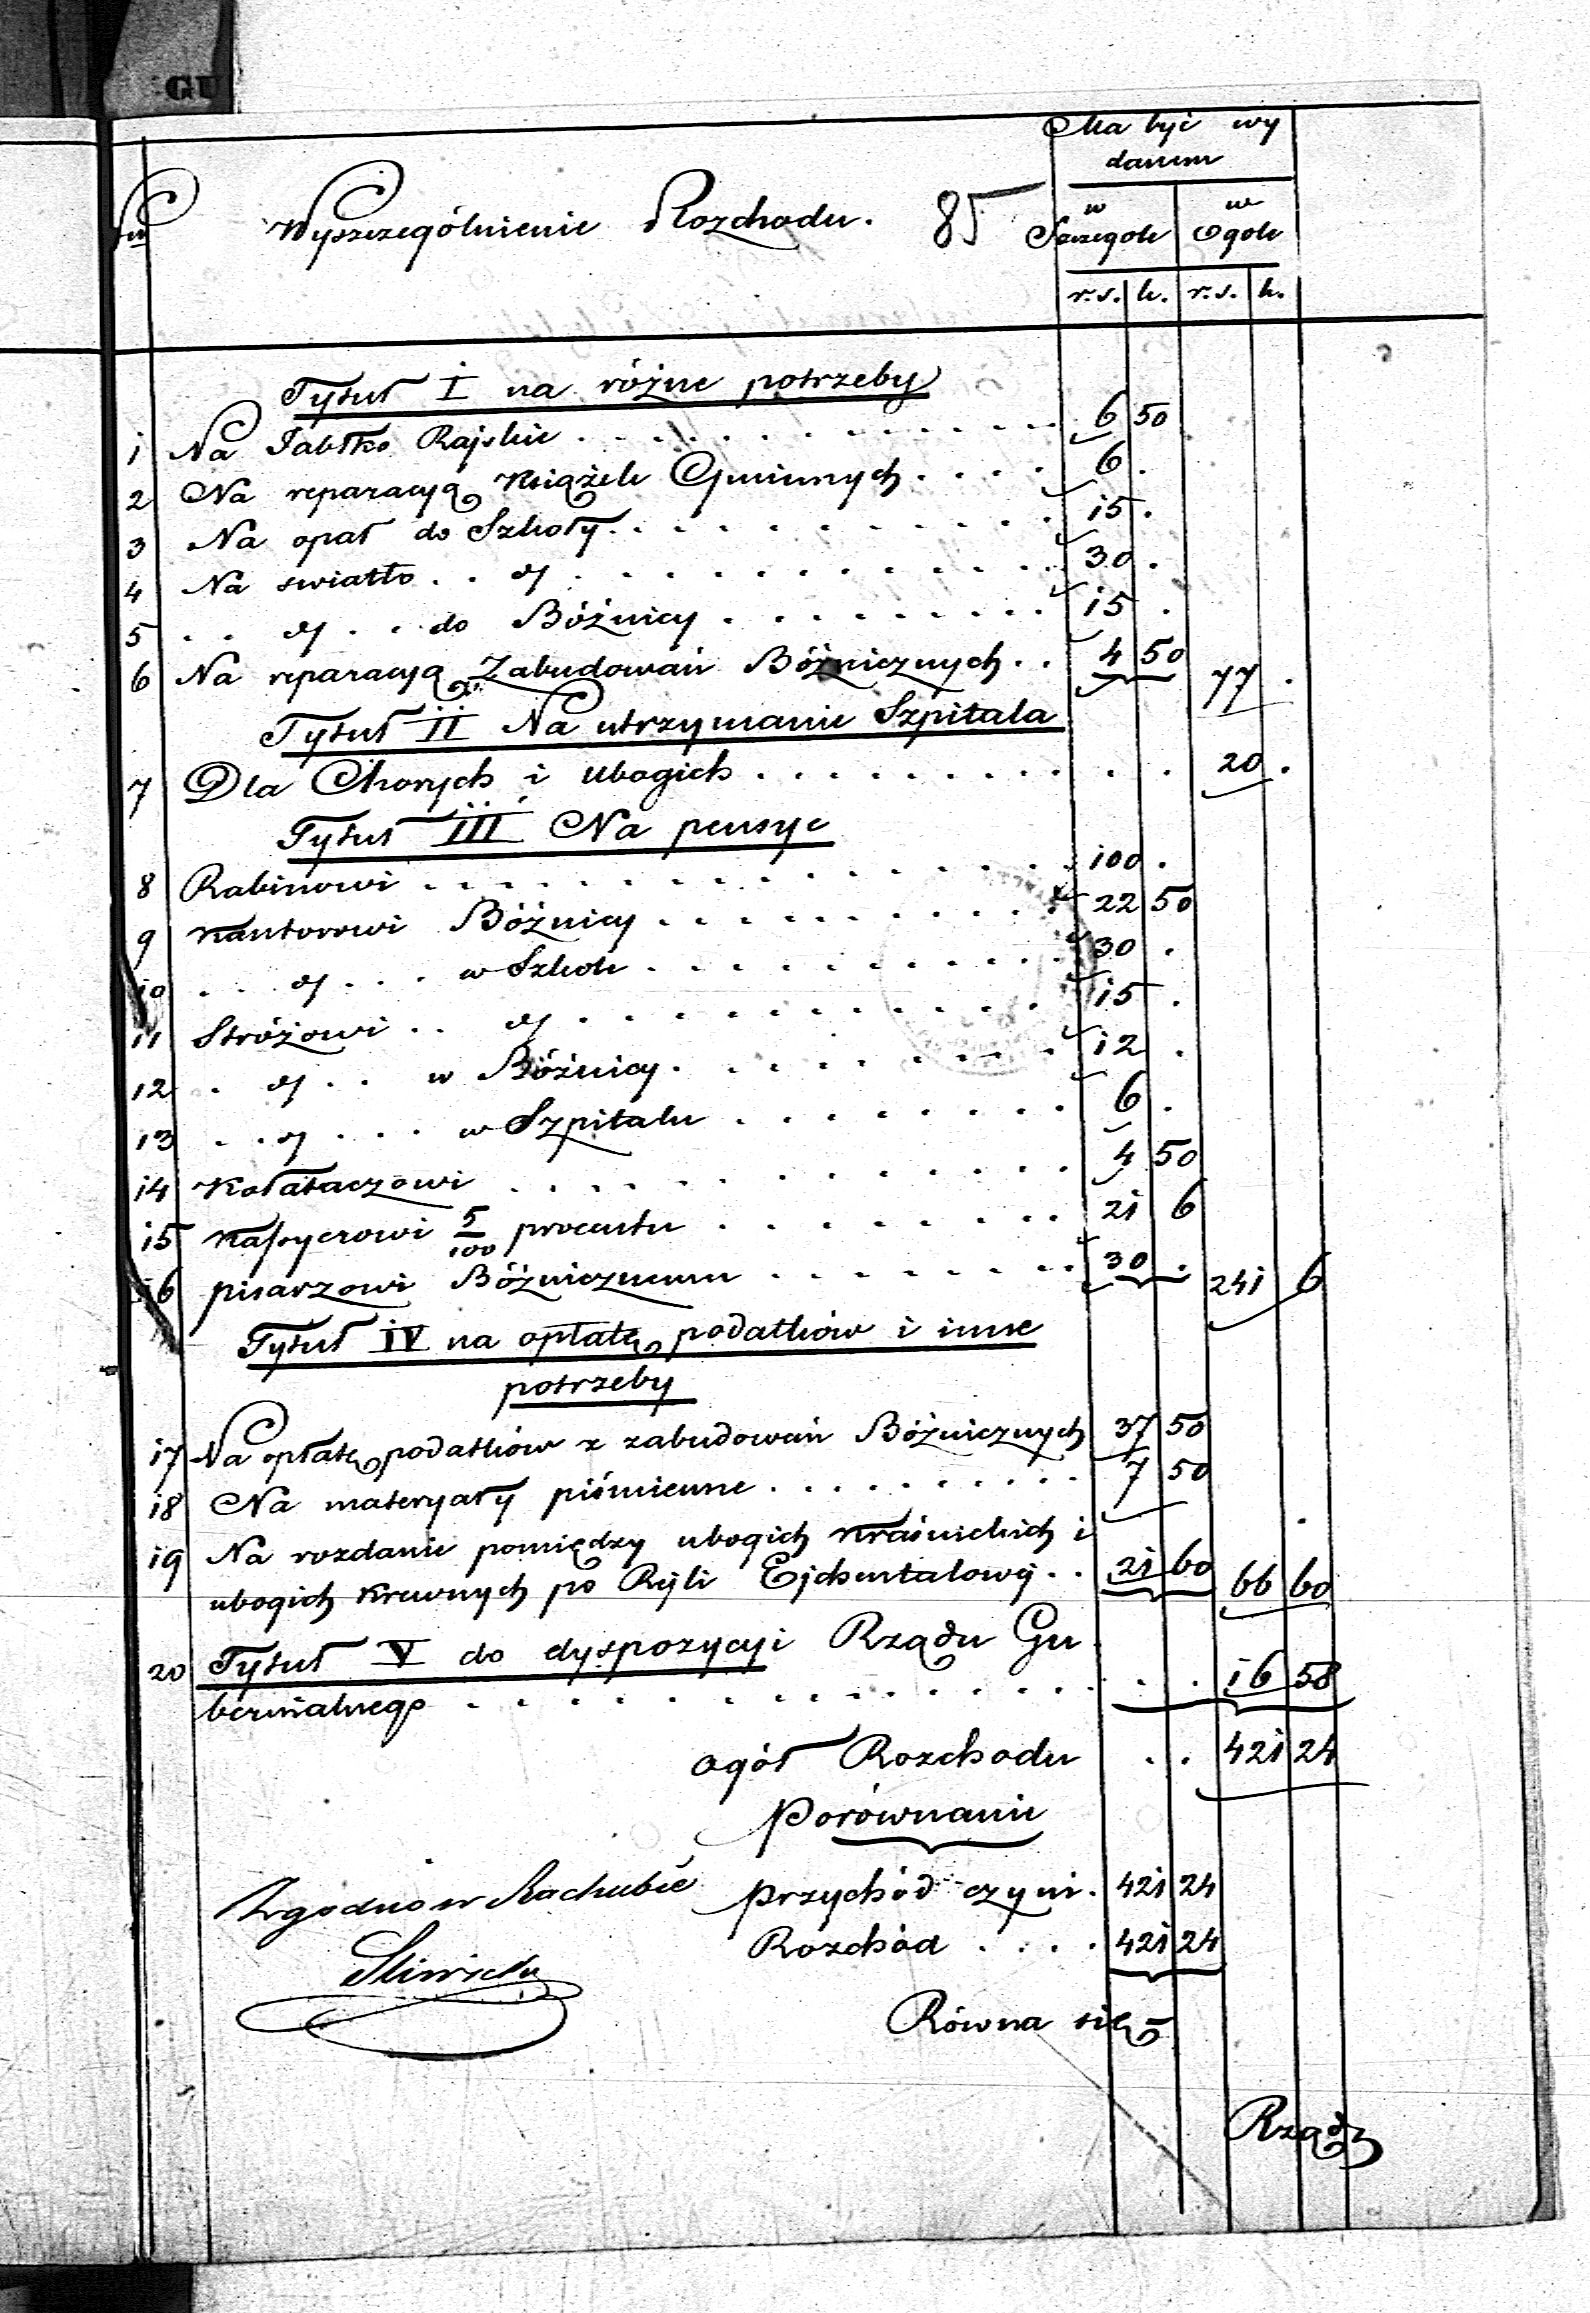 GU
Ma być wy
danem
Nr Wyszczególnienie Rozchodu. 85 w Szczegole w Ogole
r.s. k. r.s. k.
Tytuł I na różne potrzeby
1 Na Jabłko Rajskie 6 50
2 Na reparacyą Książek Gminnych 6 .
3 Na opał do Szkoły 15 .
4 Na swiatło . . dj 30 .
5 . . dj . . do Bóżnicy 15 .
6 Na reparacyą Zabudowań Bóżnicznych . . 4 50 77 .
Tytuł II Na utrzymanie Szpitala
7 Dla Chorych i ubogich . . 20 .
Tytuł III Na pensye
8 Rabinowi 100 .
9 Kantorowi Bóżnicy 22 50
10 . . dj . . . w Szkole 30 .
11 Stróżowi . . dj 15 .
12 . dj . . w Bóżnicy 12 .
13 . . dj . . . w Szpitalu 6 .
14 Kołataczowi 4 50
15 Kassyerowi 5/100 procentu 21 6
16 pisarzowi Bóżnicznemu 30 . 241 6
Tytuł IV na opłatę podatków i inne
potrzeby
17 Na opłatę podatków z zabudowań Bóżnicznych 37 50
18 Na materyały piśmienne 7 50
19 Na rozdanie pomiędzy ubogich Kraśnickich i
ubogich Krewnych po Ryli Ejchentalowéj . . 21 60 66 60
20 Tytuł V do dyspozycyi Rządu Gu
bernialnego . . 16 58
Ogół Rozchodu . . 421 24
Porównanie
Zgodno w Rachubie Przychód czyni . 421 24
Rozchód . . . . 421 24
Równa się
Rządz